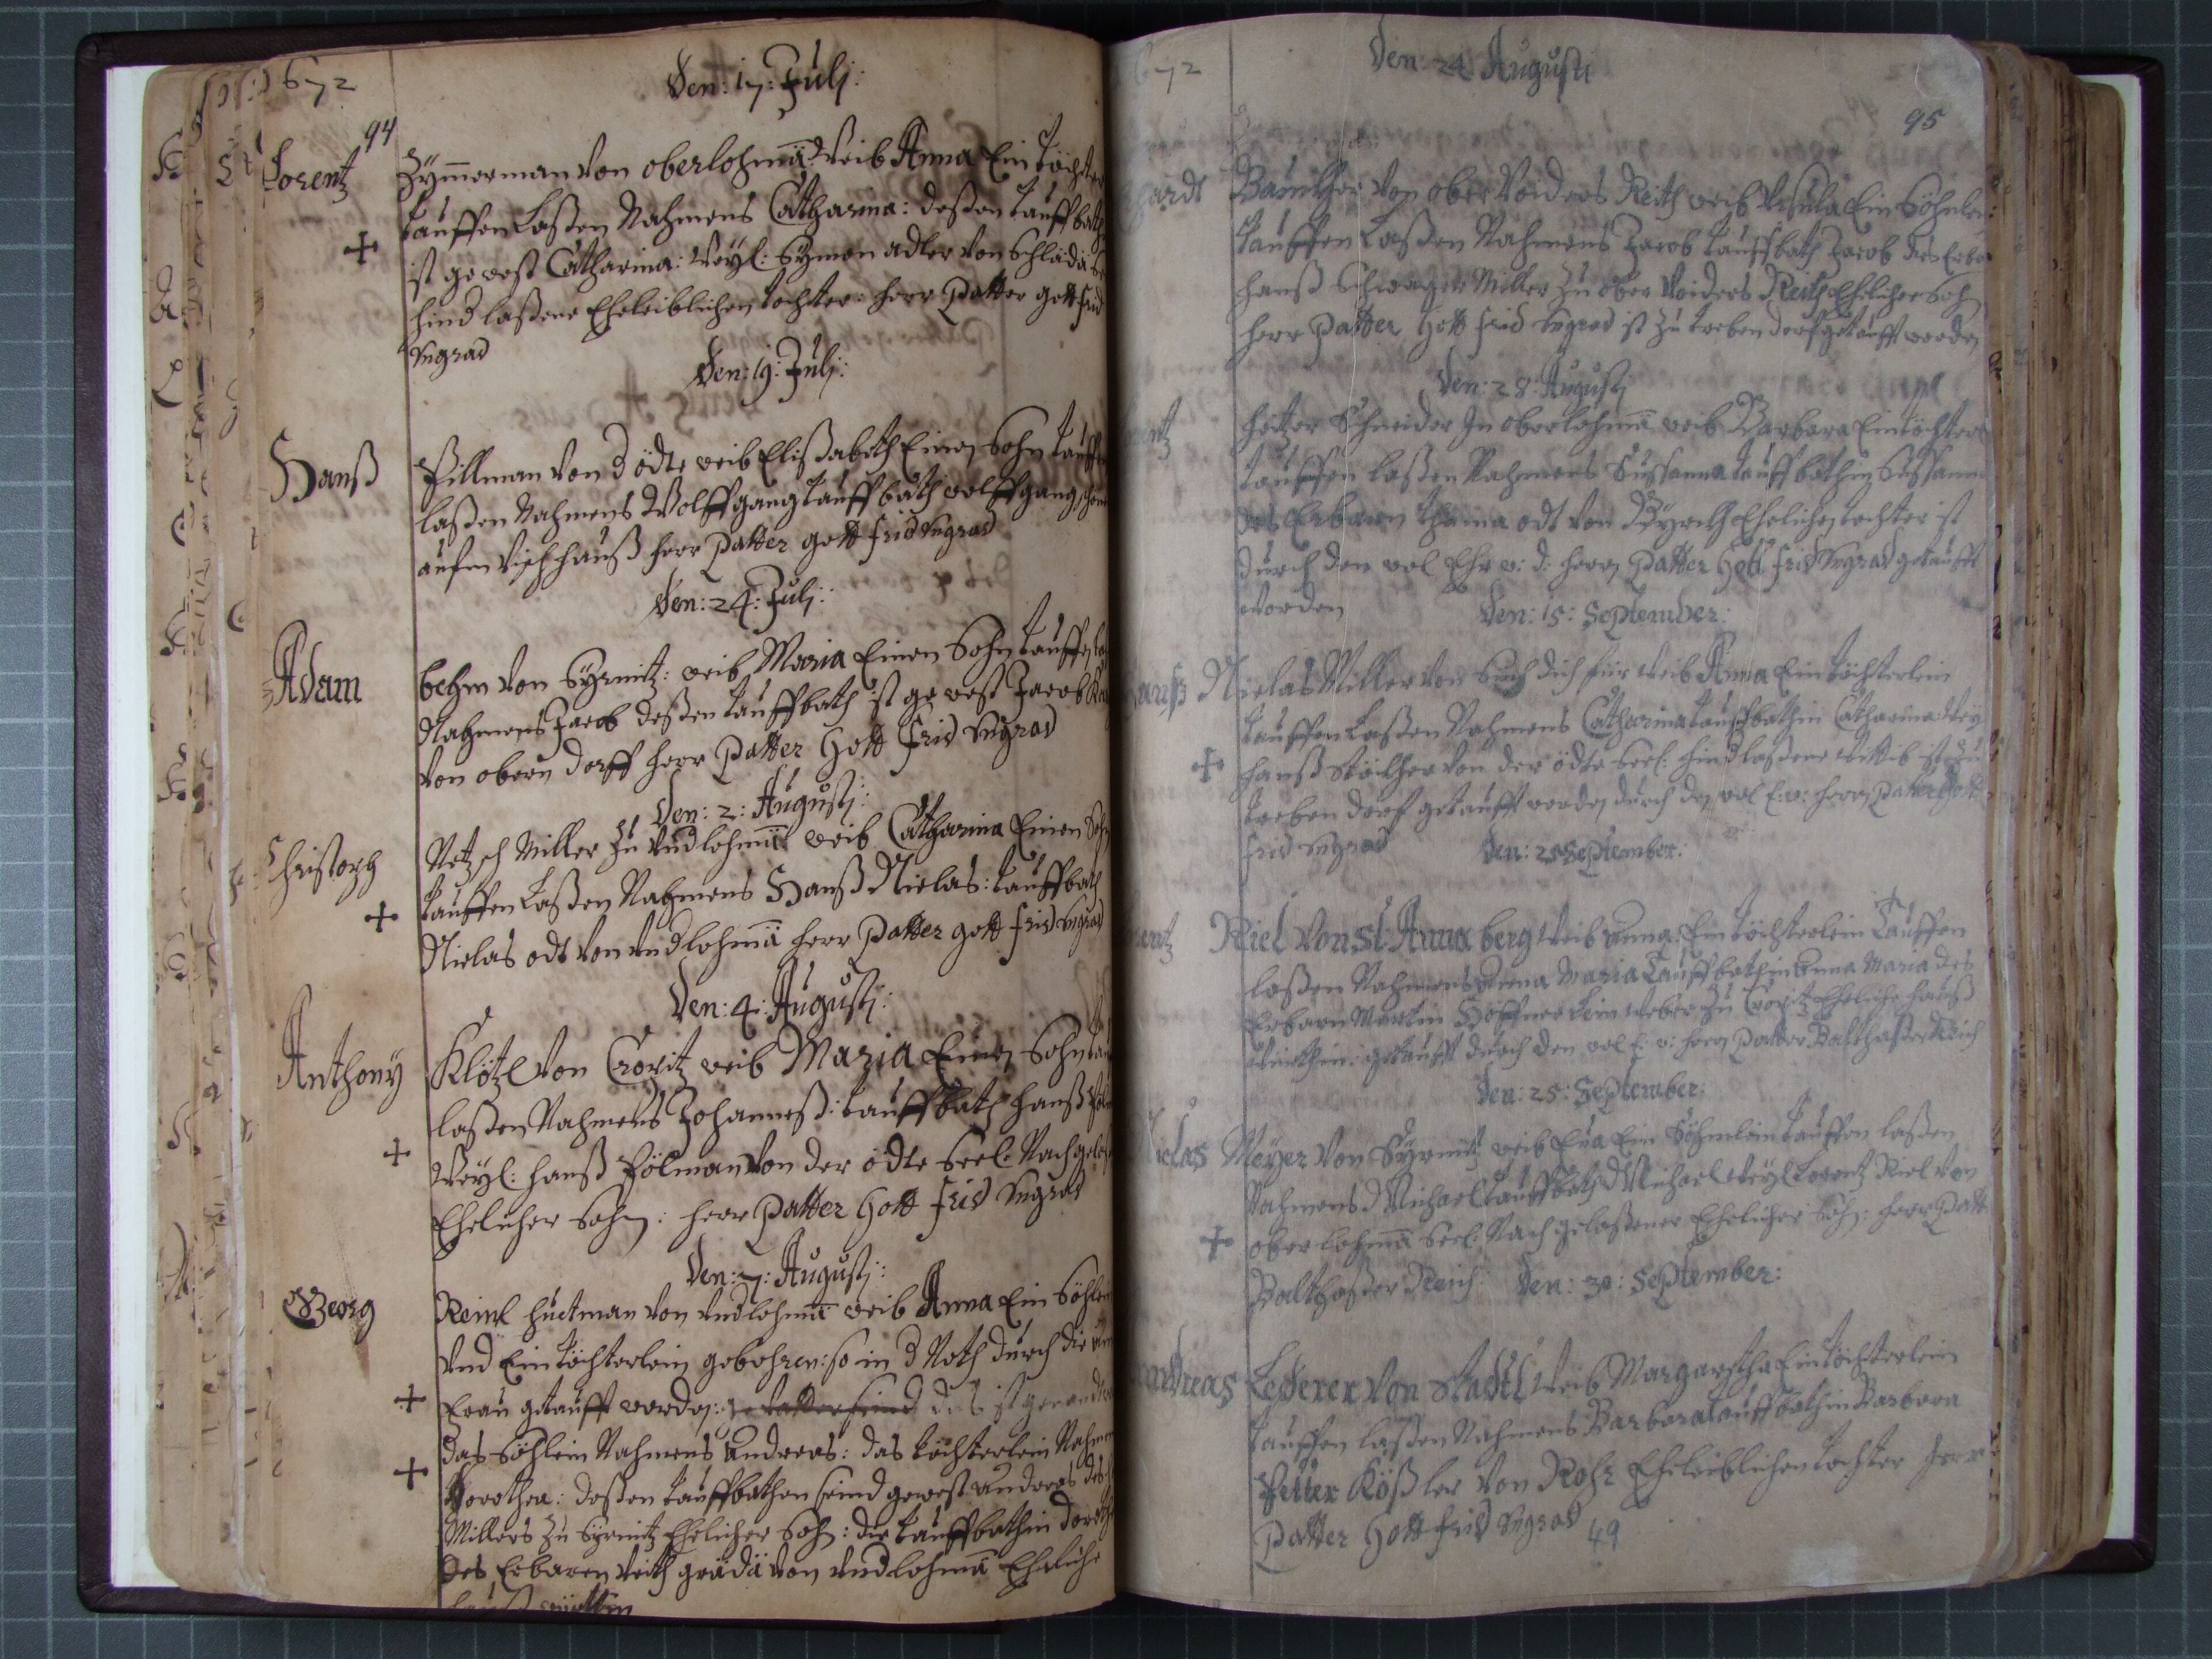 1672
Den: 17: Julj:
94
Lorentz Zÿmerman von oberlohmä Weib Anna Ein töchter
tauffen Laßen Nahmens Catharina: deßen tauffbath
ist gewest Catharina: Weÿl: Sÿmon adler von Schlada
hind laßene Eheleiblichen tochter: herr Patter gottfrid
Ingrad
Den: 19: Julj:
Hanß Pillman von d ödte weib Elisabeth Einen Sohn tauffen
laßen Nahmens Wolffgang tauffbath wolffgang
aufm Viehhauß herr Patter gottfrid Ingrad
Den: 24: Julj:
Adam behm von Sÿrmitz: weib Maria Einen Sohn tauffen
Nahmens Jacob deßen tauffbath ist gewest Jacob
von obern dorff herr Patter Gottfrid Ingrad
Den: 2: Augustj:
Christoph Netzsch Miller Zu Undlohmä weib Catharina Einen Sohn
tauffen Laßen Nahmens Hanß Niclas: tauffbath
Niclas odt von undlohmä herr Patter gottfrid Ingrad
Den: 4: Augustj:
Anthony Klötzl von Croÿitz weib Maria Einen Sohn
laßen Nahmens Johanneß: tauffbath hanß
Weÿl: hanß Pölman von der ödte Seel: Nachgelaß
Ehelicher Sohn: herr Patter Gottfrid Ingrad
Den: 7: Augustj:
Georg Reinl huetman von undlohmä weib Anna Ein Söhlein
Und Ein töchterlein gebohren: so in d Noth durch die
Frau getaufft worden:
das Söhlein Nahmens Andreas: das töchterlein Nahmens
Dorothea: deßen tauffbathen seind gewest Andreas des
Millers Zu Sÿrmitz Ehelicher Sohn: die tauffbathin Doroth
des Erbaren Veith grädä von undlohmä Eheliche
hauß würthin
672
Den: 24 Augusti
95
hardt Baumther von ober Voiders Reith weib Ursula Ein Söhnlein
tauffen Laßen Nahmens Jacob tauffbath Jacob des Erba
hanß Schwagers Miller Zu ober Voiders Reith Ehelicher Sohn
herr Patter Gottfrid Ingrad ist Zu trebendorf getaufft worden
Den: 28: Augustj
entz hetzer Schneider In oberlohmä weib Barbara Ein töchter
tauffen laßen Nahmens Sussanna tauffbathin Sussann
des Erbaren thoma odt von Eheliche tochter ist
durch den wol Ehr: v: d: herrn Patter Gottfrid Ingrad getaufft
worden
Den: 15: September:
hanß Niclas Miller von Sich dich für weib Anna Ein töchterlein
tauffen Laßen Nahmens Catharina tauffbathin Catharina Weÿ
hanß von der ödte Seel: hindlaßene Wittib ist zu
trebendorf getaufft worden durch den wol E: v: herrn Patter Gott
frid Ingrad
Den: 25 September:
rentz Riel von St: Anna berg weib Anna: Ein töchterlein tauffen
laßen Nahmens Anna Maria tauffbathin Anna Maria des
Erbaren Martin Höffner Leinweber zu Croÿitz Eheliche hauß
würthin: getaufft durch den wol E: v: herrn Patter Balthaßer Reich
Den: 25: September:
Niclas Meÿer von Sÿrmitz weib Eua Ein Söhnlein tauffen laßen
Nahmens Michael tauffbath Michael Weÿl Lorentz Riel von
oberlohmä Seel: Nachgelaßener Ehelicher Sohn: herr Patt
Balthaßer Reich
Den: 30: September:
Andreas Lederer von Stadtl weib Margaretha Ein töchterlein
tauffen laßen Nahmens Barbara tauffbathin Barbara
Petter Kößler von Rohr Eheleiblichen tochter herr
Patter Gottfrid Ingrad
49